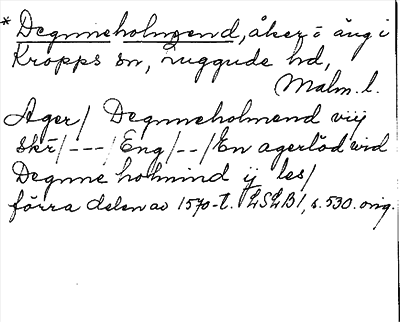 * Degnneholmend, åker o äng i
Kropps sn, Luggude hd,
Malm. l.
Ager / Degnneholmend viij
skr / --- / Eng / -- / En agerlöd wid
Degnne holmind ij les /
förra delen av 1570-t. LSLB1, s. 530. orig.